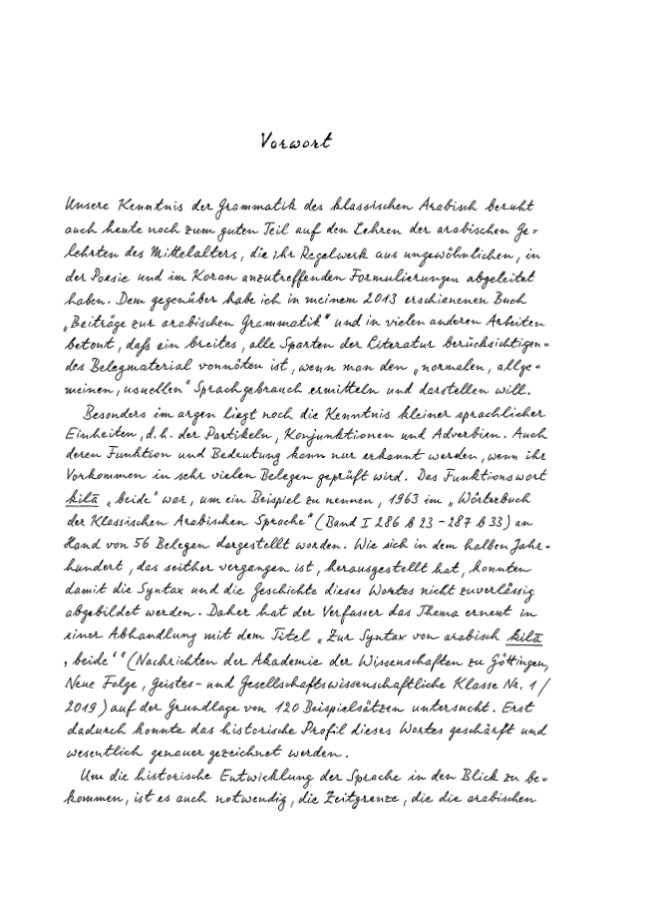 Vorwort
Unsere Kenntnis der Grammatik des klassischen Arabisch beruht
auch heute noch zum guten Teil auf den Lehren der arabischen Ge=
lehrten des Mittelalters, die ihr Regelwerk aus ungewöhnlichen, in
der Poesie und im Koran anzutreffenden Formulierungen abgeleitet
haben. Dem gegenüber habe ich in meinem 2013 erschienenen Buch
„Beiträge zur arabischen Grammatik“ und in vielen anderen Arbeiten
betont, daß ein breites, alle Sparten der Literatur berücksichtigen=
des Belegmaterial vonnöten ist, wenn man den „normalen, allge=
meinen, usuellen“ Sprachgebrauch ermitteln und darstellen will.
Besonders im argen liegt noch die Kenntnis kleiner sprachlicher
Einheiten, d. h. der Partikeln, Konjunktionen und Adverbien. Auch
deren Funktion und Bedeutung kann nur erkannt werden, wenn ihr
Vorkommen in sehr vielen Belegen geprüft wird. Das Funktionswort
kilā „beide“ war, um ein Beispiel zu nennen, 1963 im „Wörterbuch
der Klassischen Arabischen Sprache“ (Band I 286 b 23 - 287 b 33) an
Hand von 56 Belegen dargestellt worden. Wie sich in dem halben Jahr=
hundert, das seither vergangen ist, herausgestellt hat, konnten
damit die Syntax und die Geschichte dieses Wortes nicht zuverlässig
abgebildet werden. Daher hat der Verfasser das Thema erneut in
einer Abhandlung mit dem Titel „Zur Syntax von arabisch kilā
‚beide‘“ (Nachrichten der Akademie der Wissenschaften zu Göttingen,
Neue Folge, Geistes- und Gesellschaftswissenschaftliche Klasse Nr. 1 /
2019) auf der Grundlage von 120 Beispielsätzen untersucht. Erst
dadurch konnte das historische Profil dieses Wortes geschärft und
wesentlich genauer gezeichnet werden.
Um die historische Entwicklung der Sprache in den Blick zu be=
kommen, ist es auch notwendig, die Zeitgrenze, die die arabischen